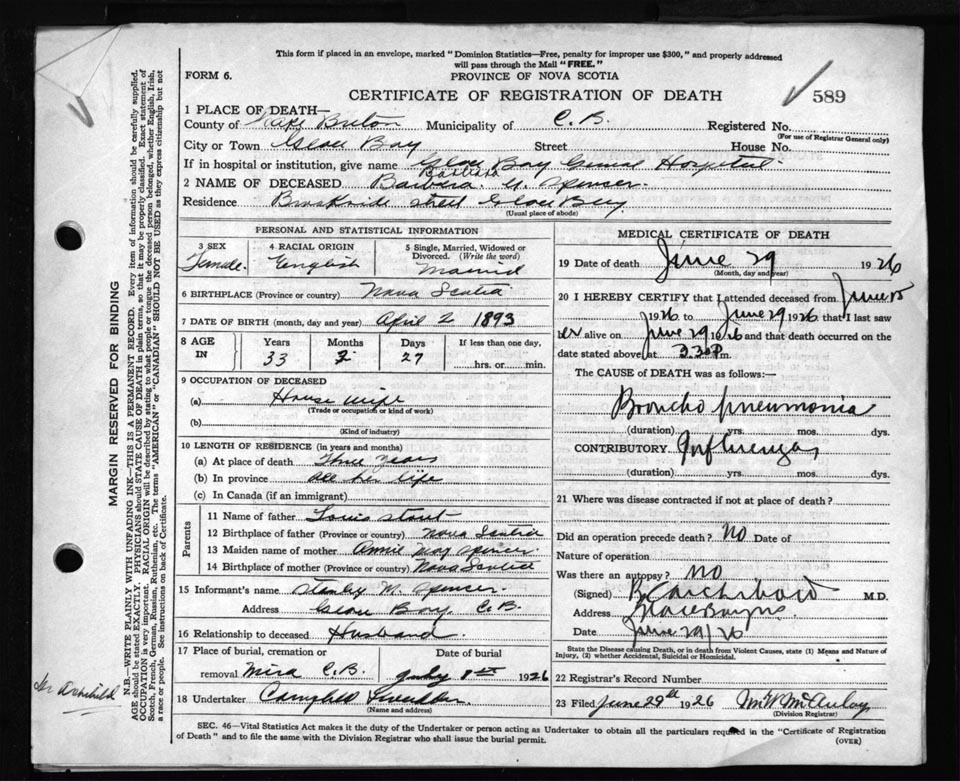 This form if placed in an envelope, marked "Dominion Statistics—Free, penalty for improper use $300," and properly addressed
will pass through the Mail "FREE."
FORM 6.
PROVINCE OF NOVA SCOTIA
CERTIFICATE OF REGISTRATION OF DEATH
589
1 PLACE OF DEATH—
County of Cape Breton Municipality of C. B. Registered No.
(For use of Registrar General only)
City or Town Glace Bay Street House No.
If in hospital or institution, give name Glace Bay General Hospital
Barbara
2 NAME OF DECEASED Barbera. Spenser.
Residence Street Glace Bay
(Usual place of abode)
PERSONAL AND STATISTICAL INFORMATION
3 SEX
Female.
4 RACIAL ORIGIN
English
5 Single, Married, Widowed or
Divorced. (Write the word)
Married
6 BIRTHPLACE (Province or country) Nova Scotia
7 DATE OF BIRTH (month, day and year) April 2 1893
8 AGE
IN
Years Months Days If less than one day,
33 2 27 hrs. or min.
9 OCCUPATION OF DECEASED
(a) House wife
(Trade or occupation or kind of work)
(b)
(Kind of industry)
10 LENGTH OF RESIDENCE (in years and months)
(a) At place of death Three years
(b) In province all her life
(c) In Canada (if an immigrant)
Parents
11 Name of father Louis Stout
12 Birthplace of father (Province or country) Nova Scotia
13 Maiden name of mother Annie May Spencer.
14 Birthplace of mother (Province or country) Nova Scotia
15 Informant's name Stanley W. Spencer.
Address Glace Bay, C. B.
16 Relationship to deceased Husband.
17 Place of burial, cremation or Date of burial
removal Mira C. B. July 1st 1926
18 Undertaker Campbell
(Name and address)
MEDICAL CERTIFICATE OF DEATH
19 Date of death June 29 1926
(Month, day and year)
20 I HEREBY CERTIFY that I attended deceased from June
1926 to June 29 1926 that I last saw
her alive on June 29 1926 and that death occurred on the
date stated above at 3.30 P.m.
The CAUSE of DEATH was as follows:—
Broncho pneumonia
(duration) yrs. mos. dys.
CONTRIBUTORY Influenza
(duration) yrs. mos. dys.
21 Where was disease contracted if not at place of death?
Did an operation precede death? No Date of
Nature of operation
Was there an autopsy? no
(Signed) Archibald M.D.
Address Glace Bay NS
Date June 29/26
State the Disease causing Death, or in death from Violent Causes, state (1) Means and Nature of
Injury, (2) whether Accidental, Suicidal or Homicidal.
22 Registrar's Record Number
23 Filed June 29th 1926 McAulay
(Division Registrar)
SEC. 46—Vital Statistics Act makes it the duty of the Undertaker or person acting as Undertaker to obtain all the particulars required in the "Certificate of Registration
of Death" and to file the same with the Division Registrar who shall issue the burial permit.
(OVER)
MARGIN RESERVED FOR BINDING
N.B.—WRITE PLAINLY WITH UNFADING INK—THIS IS A PERMANENT RECORD. Every item of information should be carefully supplied.
AGE should be stated EXACTLY. PHYSICIANS should STATE CAUSE OF DEATH in plain terms, so that it may be properly classified. Exact statement of
OCCUPATION is very important. RACIAL ORIGIN will be described by stating to what people or tongue the deceased person belonged, whether English, Irish,
Scotch, French, German, Russian, Ruthenian, etc. The terms "AMERICAN" or "CANADIAN" SHOULD NOT BE USED as they express citizenship but not
a race or people. See instructions on back of Certificate.